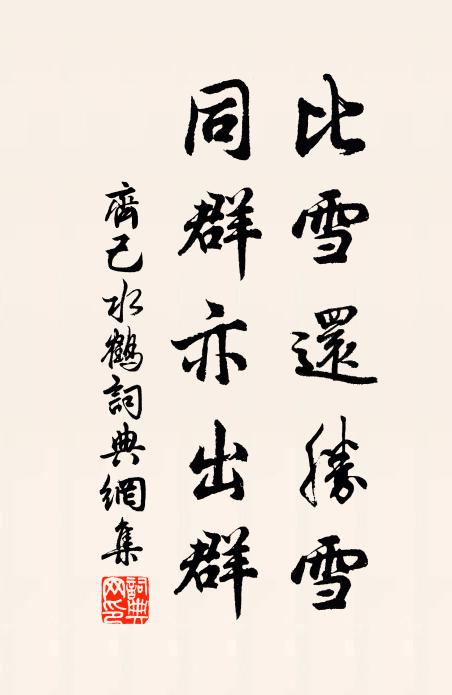 比雪還勝雪
同群亦出群
齊己水鶴詞典網集
詞典网印